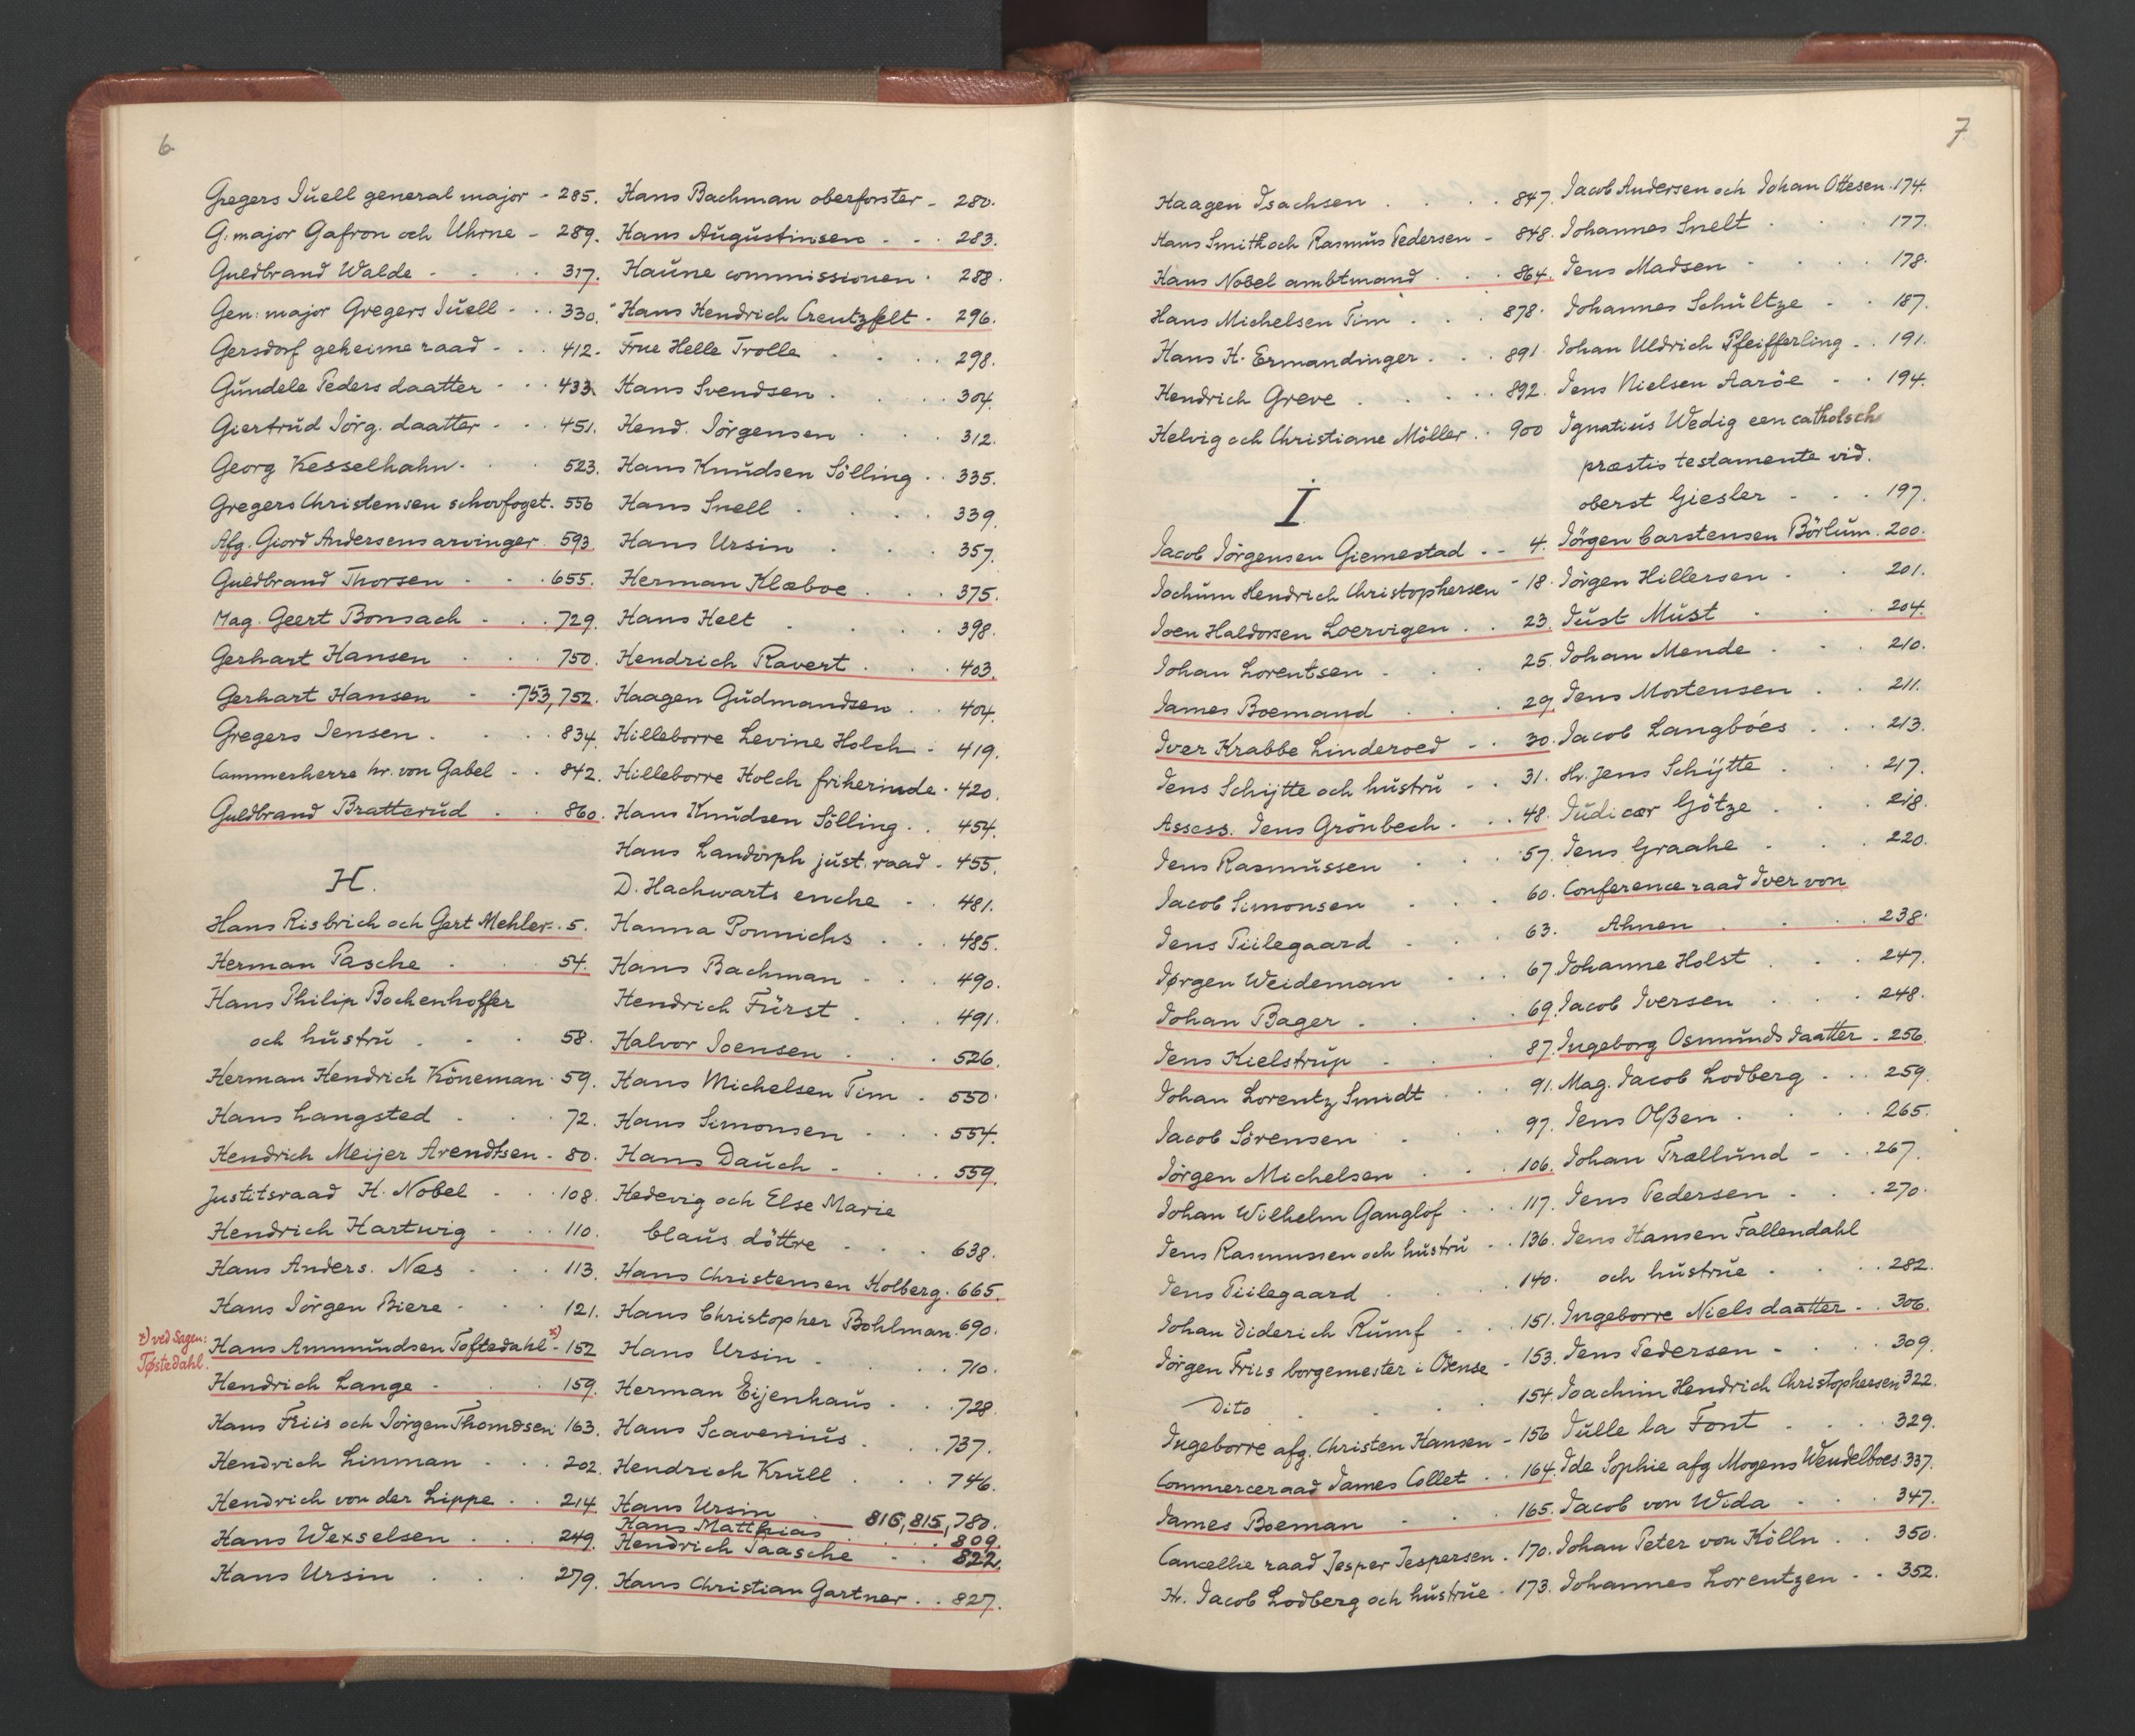 6
Gregers Juell general major - 285.
G: major Gafron och Uhrne - 289.
Guldbrand Walde - . . . 317.
Gen: major Gregers Juell - . . 330.
Gersdorf geheime raad - . . 412.
Gundele Peders daatter - . . 433.
Giertrud Jörg. daatter - . . 451.
Georg Kesselhahn . . . 523.
Gregers Christensen schovfoget . 556
Afg. Giord Andersens arvinger . 593
Guldbrand Thorsen - . . . 655.
Mag. Geert Bonsach - . . . 729.
Gerhart Hansen . . . 750.
Gerhart Hansen - . 753, 752.
Gregers Jensen . . . . 834.
Cammerherre hr. von Gabel . . 842.
Guldbrand Bratterud . . 860.
H.
Hans Risbrich och Gert Mehler . 5.
Herman Pasche . . . 54.
Hans Philip Bochenhoffer
och hustru . . . 58.
Herman Hendrich Köneman . 59.
Hans Langsted . . . 72.
Hendrich Meijer Arendtsen - 80.
Justitsraad H. Nobel - . . 108.
Hendrich Hartwig - . . 110.
Hans Anders. Næs . . . 113.
Hans Jörgen Biere - . . 121.
x) ved Sagen:
Tøstedahl.
Hans Ammundsen Toftedahl x) - 152
Hendrich Lange - . . 159.
Hans Friis och Jörgen Thomdsen 163.
Hendrich Linman . . . 202.
Hendrich von der Lippe . . 214
Hans Wexselsen . . . 249.
Hans Ursin . . . 279.
Hans Bachman oberforster - 280.
Hans Augustinsen - . . 283.
Haune commissionen . 288.
Hans Hendrich Creutzfelt - 296.
Frue Helle Trolle . . . 298.
Hans Svendsen . . . . 304.
Hend. Jörgensen . . . 312.
Hans Knudsen Sölling . . 335.
Hans Snell . . . . 339.
Hans Ursin . . . 357.
Herman Klæboe . . . 375.
Hans Helt . . . . 398.
Hendrich Ravert . . . 403.
Haagen Gudmandsen . . 404.
Hilleborre Levine Holch - 419.
Hilleborre Holch friherinde . 420.
Hans Knudsen Sölling . . 454.
Hans Landorph just. raad - 455.
D. Hachwarts enche - . 481.
Hanna Ponnichs . . . 485.
Hans Bachman - . . 490.
Hendrich Fürst . . . 491.
Halvor Joensen . . . 526.
Hans Michelsen Tim . 550.
Hans Simonsen . . . 554.
Hans Dauch - . . . 559.
Hedevig och Else Marie
Claus döttre . . . 638.
Hans Christensen Holberg . 665.
Hans Christopher Bohlman . 690.
Hans Ursin - . . . 710.
Herman Eijenhaus . . . 728.
Hans Scavenius . . . 737.
Hendrich Krull . . . 746.
Hans Ursin — 816, 815, 780.
Hans Matthias . . . 809.
Hendrich Paasche . . 822.
Hans Christian Gartner . . 827.
7
Haagen Isachsen . . . . 847.
Hans Smith och Rasmus Pedersen - 848.
Hans Nobel ambtmand . . . 864.
Hans Michelsen Tim . . . 878.
Hans H. Ermandinger . . . 891.
Hendrich Greve . . . . 892.
Helvig och Christiane Möller . . 900
I.
Jacob Jörgensen Giemestad . - 4.
Jochum Hendrich Christophersen - 18.
Joen Haldorsen Loervigen . . 23.
Johan Lorentsen . . . 25.
James Boemand . . . 29.
Iver Krabbe Linderoed - . 30.
Jens Schijtte och hustru - . 31.
Assess. Jens Grönbech . . . 48.
Jens Rasmussen . . . 57.
Jacob Simonsen . . . 60.
Jens Piilegaard . . . 63.
Jørgen Weideman . . . 67.
Johan Bager . . . . 69.
Jens Kielstrup . . . 87.
Johan Lorentz Smidt . . . 91.
Jacob Sörensen . . . 97.
Jörgen Michelsen . . . 106.
Johan Wilhelm Ganglof . . . 117.
Jens Rasmussen och hustru . . 136.
Jens Piilegaard . . . . 140.
Johan Diderich Rumf . . . 151.
Jörgen Friis borgemester i Odense - 153.
Dito . . . . 154.
Ingeborre afg. Christen Hansen - 156
Commerceraad James Collet . . 164.
James Boeman . . . 165.
Cancellie raad Jesper Jespersen . 170.
Hr. Jacob Lodberg och hustrue . 173.
Jacob Andersen och Johan Ottesen . 174.
Johannes Snelt . . . 177.
Jens Madsen . . . . 178.
Johannes Schultze - . 187.
Johan Uldrich Pfeifferling . . 191.
Jens Nielsen Aaröe - . 194.
Ignatius Wedig een catholsch
præstis testamente vid.
oberst Giesler - . . 197.
Jörgen Carstensen Börlum . 200.
Jörgen Hillersen . . 201.
Just Must . . . 204.
Johan Mende . . . 210.
Jens Mortensen . . 211.
Jacob Langböes . . . 213.
Hr. Jens Schijtte . . . 217.
Judicær Götze . . . 218.
Jens Graahe - . . 220.
Conference raad Iver von
Ahnen . . . 238.
Johanne Holst . . . 247.
Jacob Iversen . . . 248.
Ingeborg Osmunds daatter - 256.
Mag. Jacob Lodberg . . . 259.
Jens Olßen . . . . 265.
Johan Trællund - . . 267.
Jens Pedersen - . . 270.
Jens Hansen Fallendahl
och hustrue . . . . 282.
Ingeborre Niels daatter . . 306.
Jens Pedersen - . . . 309.
Joachim Hendrich Christophersen 322.
Tulle la Font - . . . 329.
Ide Sophie afg Mogens Wendelboes . 337.
Jacob von Wida . . . 347.
Johan Peter von Kölln . . 350.
Johannes Lorentzen . . 352.